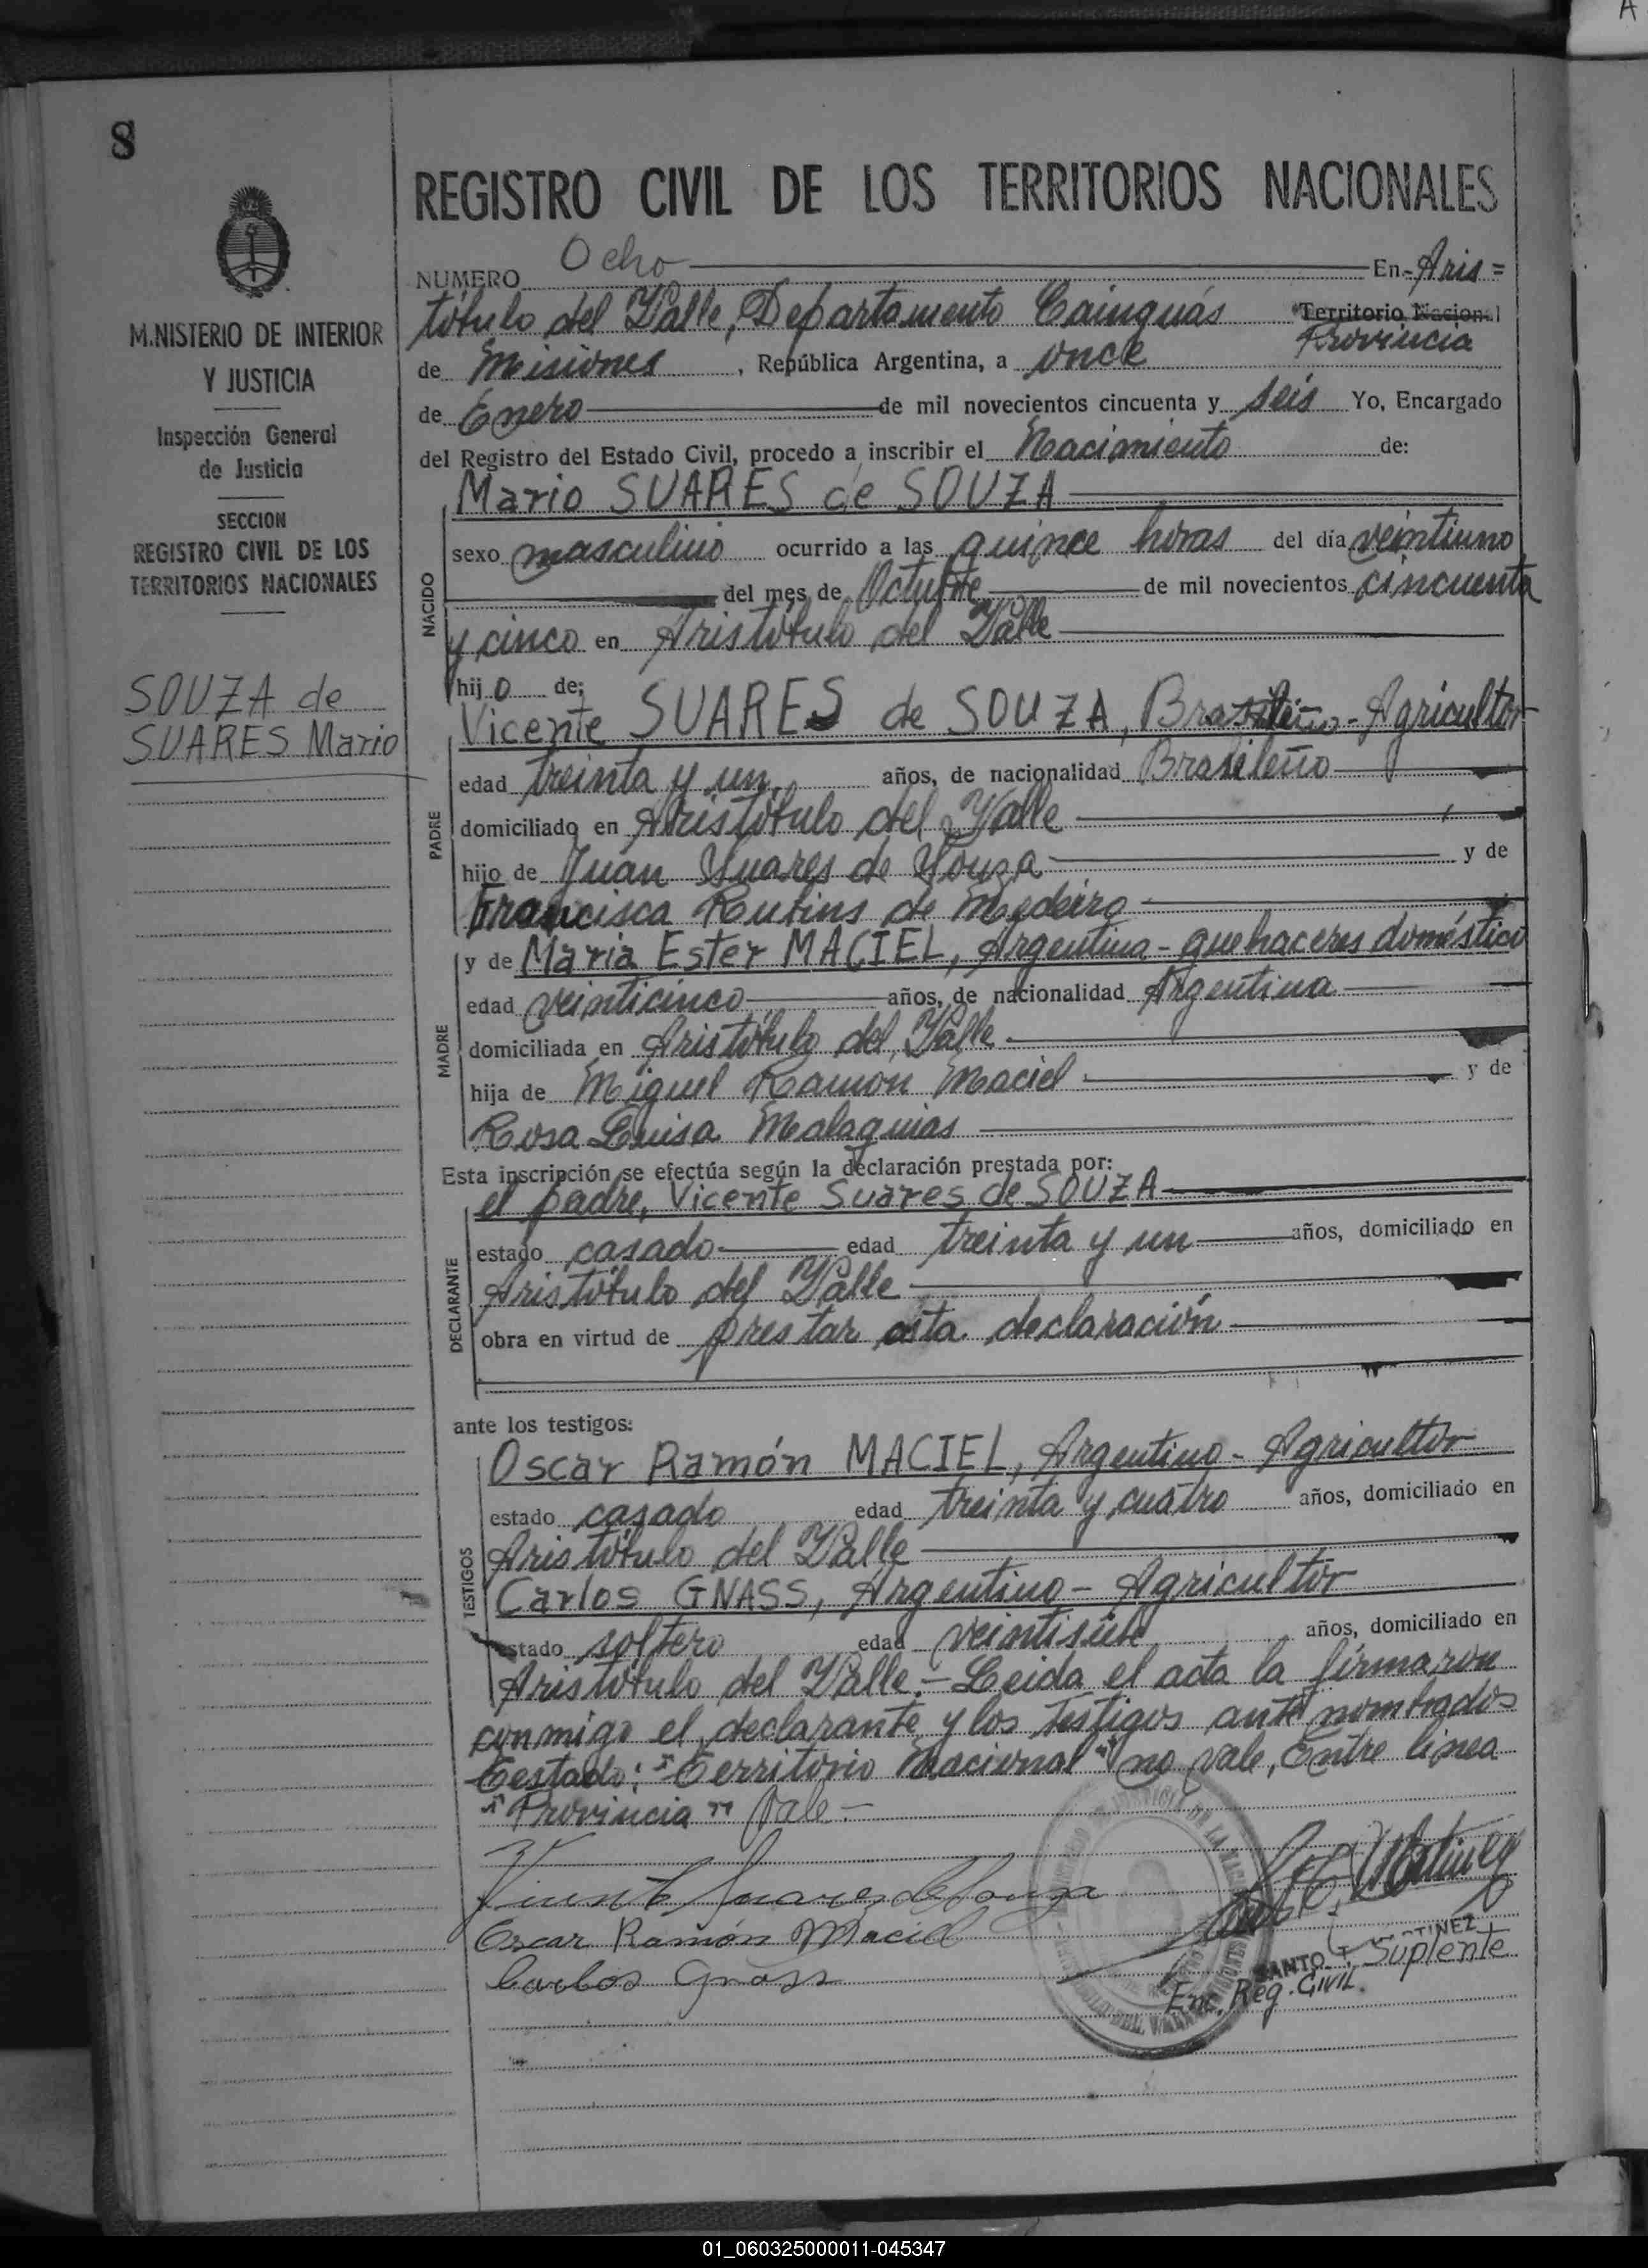 8
REGISTRO CIVIL DE LOS TERRITORIOS NACIONALES
NUMERO Ocho En.- Aris=
tóbulo del Valle, Departamento Cainguás Territorio Nacional
Provincia
de Misiones, República Argentina, a once
de Enero de mil novecientos cincuenta y seis Yo, Encargado
del Registro del Estado Civil, procedo a inscribir el Nacimiento de:
Mario SUARES de SOUZA
NACIDO
sexo masculino ocurrido a las quince horas del día veintiuno
del mes de Octubre de mil novecientos cincuenta
y cinco en Aristóbulo del Valle
hijo de:
Vicente SUARES de SOUZA, Brasileño - Agricultor
PADRE
edad treinta y un años, de nacionalidad Brasileño
domiciliado en Aristóbulo del Valle
hijo de Juan Suares de Souza y de
Francisca Rufins de Medeiro
MADRE
y de Maria Ester MACIEL, Argentina - quehaceres doméstico
edad veinticinco años, de nacionalidad Argentina
domiciliada en Aristóbulo del Valle
hija de Miguel Ramón Maciel y de
Rosa Luisa Malaquias
Esta inscripción se efectúa según la declaración prestada por:
el padre, Vicente Suares de SOUZA
DECLARANTE
estado casado edad treinta y un años, domiciliado en
Aristóbulo del Valle
obra en virtud de prestar esta declaración
ante los testigos:
TESTIGOS
Oscar Ramón MACIEL, Argentino - Agricultor
estado casado edad treinta y cuatro años, domiciliado en
Aristóbulo del Valle
Carlos GNASS, Argentino - Agricultor
estado soltero edad veintisiete años, domiciliado en
Aristóbulo del Valle.- Leida el acta la firmaron
conmigo el declarante y los testigos ante nombrados
Testado: "Territorio Nacional" no vale, Entre linea
"Provincia" Vale.-
Vicente Suares de Souza
Oscar Ramón Maciel
Carlos Gnass
SANTO T. MARTINEZ
Suplente
Enc. Reg. Civil.
M.NISTERIO DE INTERIOR
Y JUSTICIA
Inspección General
de Justicia
SECCION
REGISTRO CIVIL DE LOS
TERRITORIOS NACIONALES
SOUZA de
SUARES Mario
01_060325000011-045347